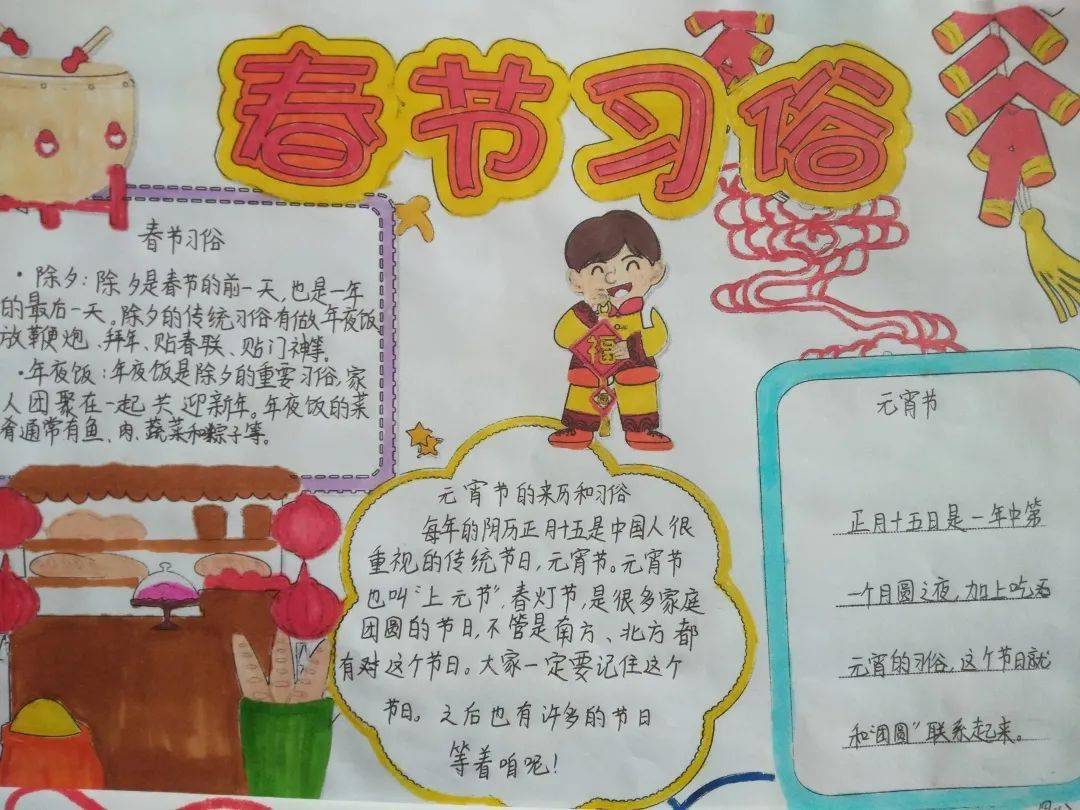 春节习俗
春节习俗
·除夕：除夕是春节的前一天，也是一年
的最后一天。除夕的传统习俗有做年夜饭
放鞭炮、拜年、贴春联、贴门神等。
·年夜饭：年夜饭是除夕的重要习俗，家
人团聚在一起共迎新年。年夜饭的菜
肴通常有鱼、肉、蔬菜和粽子等。
福
元宵节的来历和习俗
每年的阴历正月十五是中国人很
重视的传统节日，元宵节。元宵节
也叫“上元节”，春灯节，是很多家庭
团圆的节日，不管是南方、北方都
有对这个节日。大家一定要记住这个
节日。之后也有许多的节日
等着咱呢！
元宵节
正月十五日是一年中第
一个月圆之夜，加上吃
元宵的习俗，这个节日就
和“团圆”联系起来。